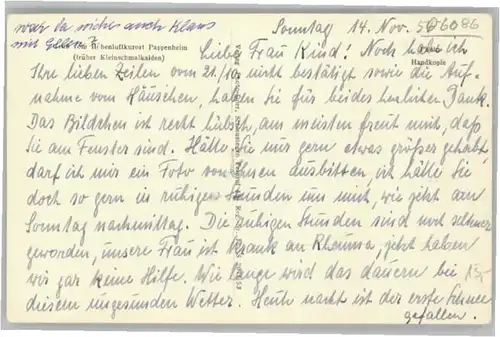 war da nicht auch Klaus
mit Gelben?
Sonntag 14. Nov. 5606086
Höhenluftkurort Pappenheim
(früher Kleinschmalkalden)
Handkopie
Liebe Frau Kind! Noch habe ich
Ihre lieben Zeilen vom 21/10. nicht bestätigt sowie die Auf-
nahme vom Häuschen, haben Sie für beides herzlichen Dank.
Das Bildchen ist recht hübsch, am meisten freut mich, daß
Sie am Fenster sind. Hätte Sie nur gern etwas größer gehabt,
darf ich mir ein Foto von Ihnen ausbitten, ich hätte Sie
doch so gern in ruhigen Stunden um mich, wie jetzt am
Sonntag nachmittag. Die ruhigen Stunden sind noch seltener
geworden, unsere Frau ist krank an Rheuma, jetzt haben
wir gar keine Hilfe. Wie lange wird das dauern bei
diesem ungesunden Wetter. Heute nacht ist der erste Schnee
gefallen.
15-